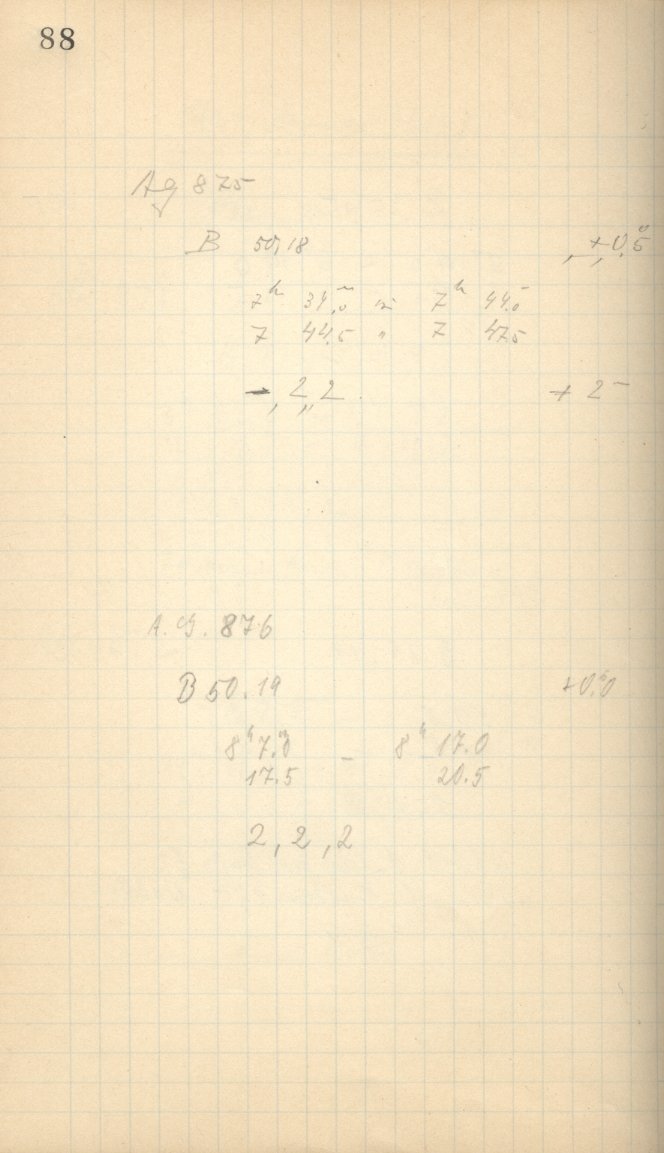 88
Ag 875
B 50,18 , + , 0,5
7h 34,0 7h 44.0
7 44.5 " 7 47.5
– , 2 ,, 2 + 2 –
A. G. 876
B 50.19 +0.0
8h 7.m0 – 8h 17.0
17.5 20.5
2 , 2 , 2